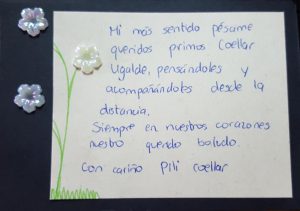 Mi más sentido pésame
queridos primos Coellar
Ugalde, pensándoles y
acompañándoles desde la
distancia.
Siempre en nuestros corazones
nuestro querido boludo.
Con cariño Pili Coellar